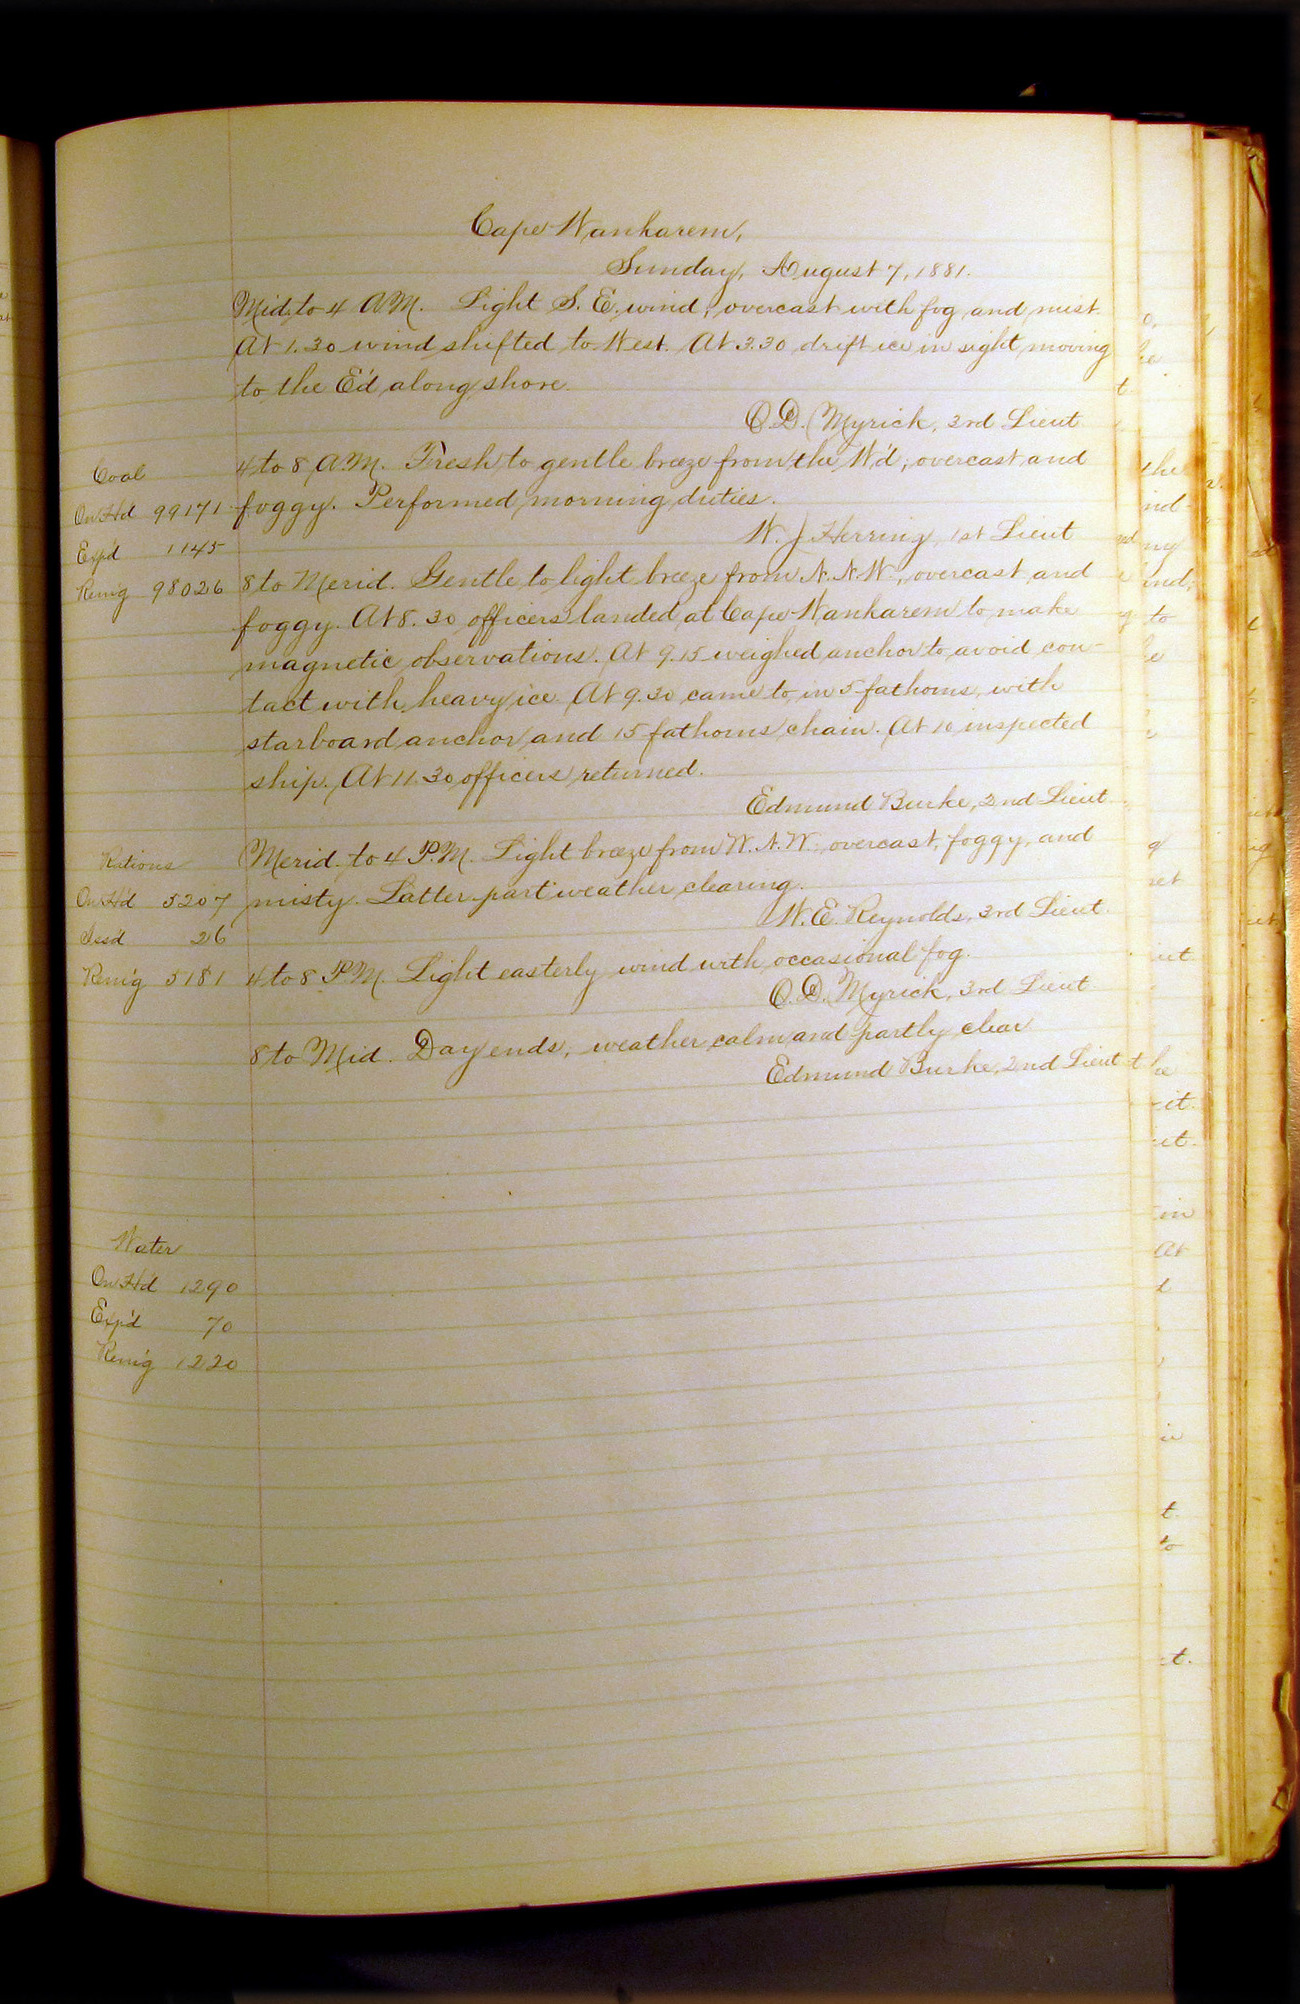 Cape Wankarem,
Sunday, August 7, 1881.
Mid. to 4 A.M. Light S. E. wind; overcast with fog and mist.
At 1.30 wind shifted to West. At 3.30 drift ice in sight, moving
to the E'd along shore.
O. D. Myrick, 3rd Lieut
4 to 8 A.M. Fresh to gentle breeze from the W'd; overcast and
foggy. Performed morning duties.
W. J. Herring, 1st Lieut
Coal
On H'd 99171
Exp'd 1145
Rem'g 98026
8 to Merid. Gentle to light breeze from N.N.W., overcast and
foggy. At 8.30 officers landed at Cape Wankarem to make
magnetic observations. At 9.15 weighed anchor to avoid con-
tact with heavy ice. At 9.30 came to in 5 fathoms, with
starboard anchor and 15 fathoms chain. At 10 inspected
ship. At 11.30 officers returned.
Edmund Burke, 2nd Lieut.
Merid. to 4 P.M. Light breeze from W.N.W., overcast, foggy, and
misty. Latter part weather clearing.
W. E. Reynolds, 3rd Lieut.
Rations
On H'd 5207
Iss'd 26
Rem'g 5181
4 to 8 P.M. Light easterly wind with occasional fog.
O. D. Myrick, 3rd Lieut
8 to Mid. Day ends, weather calm and partly clear
Edmund Burke, 2nd Lieut
Water
On H'd 1290
Exp'd 70
Rem'g 1220